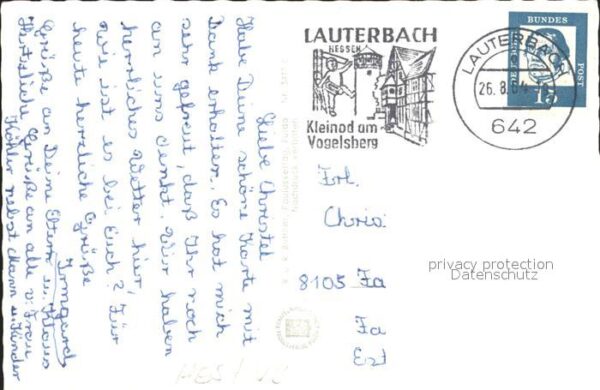 Liebe Christel
Habe Deine schöne Karte mit
Dank erhalten. Es hat mich
sehr gefreut, daß Ihr noch
an uns denkt. Wir haben
herrliches Wetter hier,
wie ist es bei Euch? Für
heute herzliche Grüße
Irmgard
Grüße an Deine Eltern u. Klaus
Herzliche Grüße an alle v. Frau
Köhler nebst Mann u. Kinder
LAUTERBACH
HESSEN
Kleinod am
Vogelsberg
LAUTERBACH
26.8.64
642
DEUTSCHE BUNDESPOST
15
Frl.
Chris
8105 Fa
Fa
privacy protection
Datenschutz